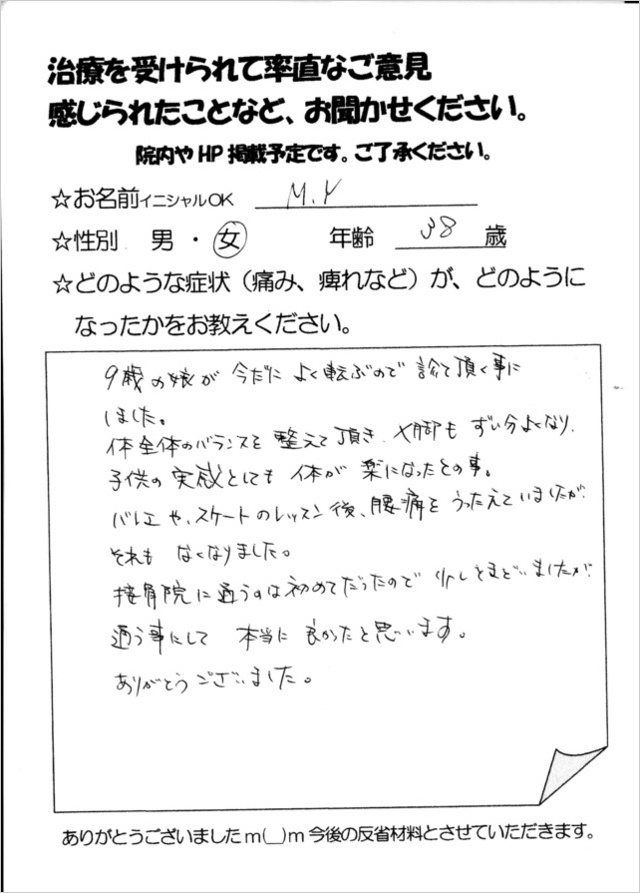 治療を受けられて率直なご意見
感じられたことなど、お聞かせください。
院内やHP掲載予定です。ご了承ください。
☆お名前イニシャルOK M.Y
☆性別 男・女 年齢 38 歳
☆どのような症状（痛み、痺れなど）が、どのように
なったかをお教えください。
9歳の娘が今だによく転ぶので診て頂く事に
しました。
体全体のバランスを整えて頂き、X脚もずい分よくなり、
子供の実感としても体が楽になったとの事。
バレエや、スケートのレッスン後、腰痛をうったえていましたが
それもなくなりました。
接骨院に通うのは初めてだったので少しとまどいましたが
通う事にして本当に良かったと思います。
ありがとうございました。
ありがとうございましたm(__)m今後の反省材料とさせていただきます。